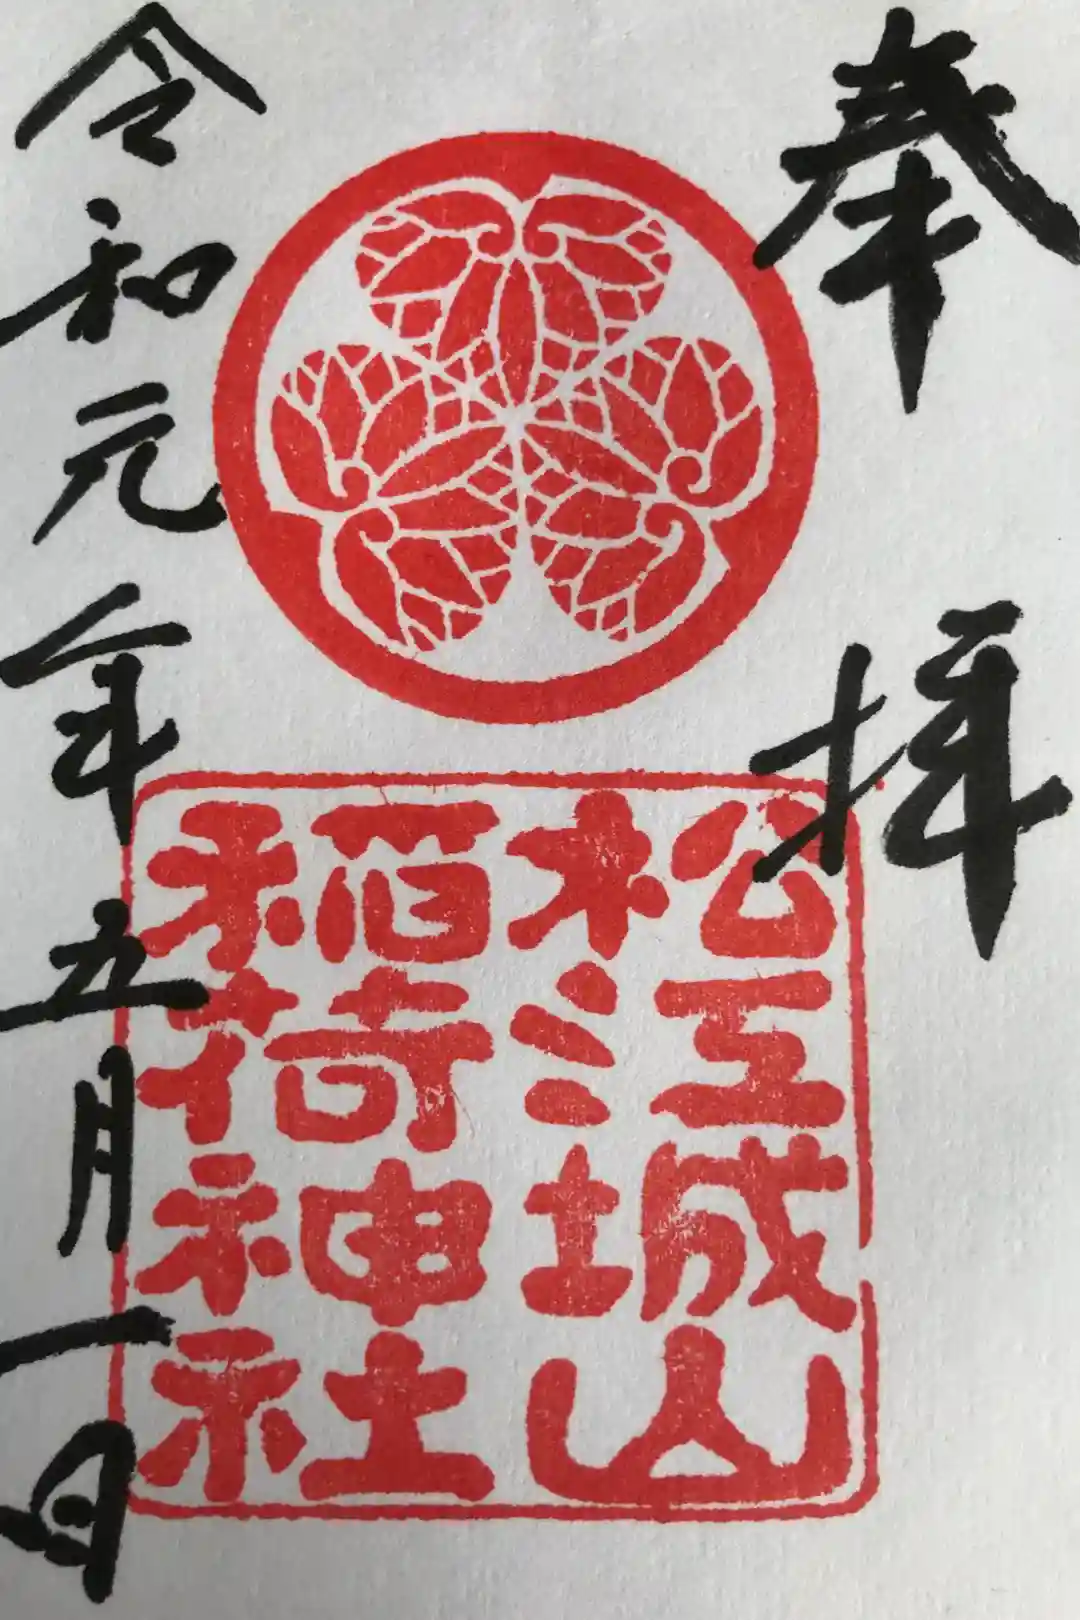 奉拝
松江城山
稲荷神社
令和元年五月一日